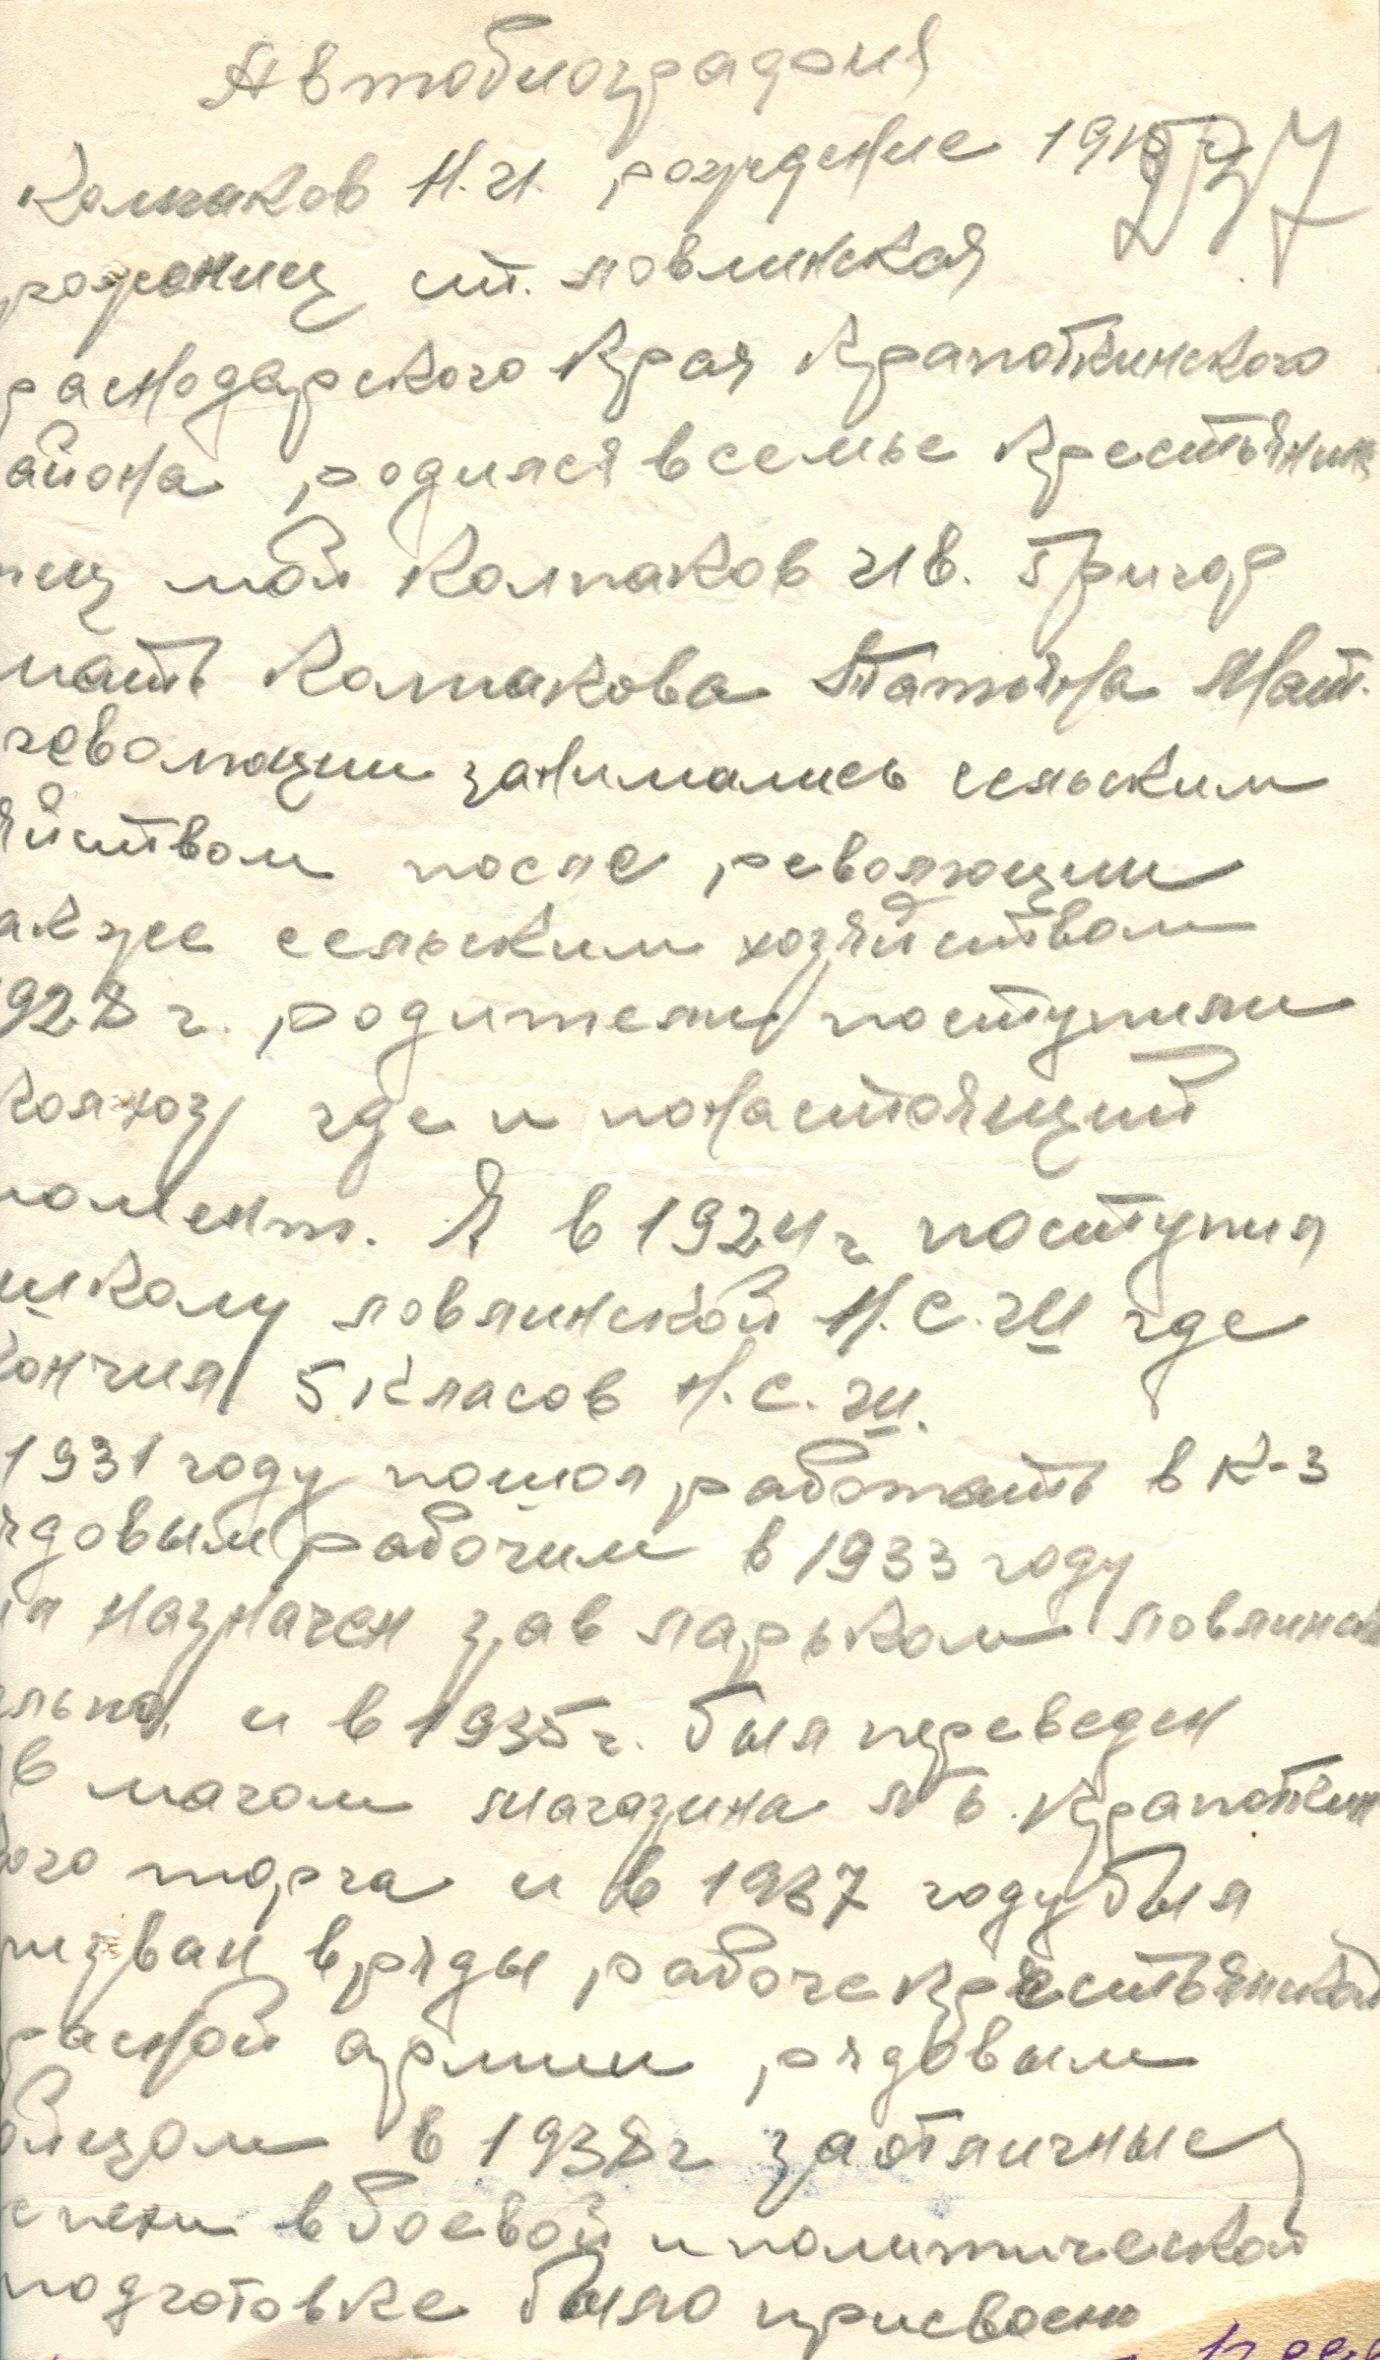 Автобиография
Колпаков Н.И. рождение 1915 г.
237
роженец ст. ловлинская
раснодарского края Крапоткинского
айона родился в семье крестьянин
тец мой Колпаков Ив. Григор
мать Колпакова Татьяна Мат.
революции занимались сельским
яйством после революции
акже сельским хозяйством
928 г. родители поступили
колхоз где и понастоящий
момент. Я в 1924 г поступил
школу ловлинской Н.С.Ш где
кончил 5 класов Н.С.Ш.
1931 году пошол работать в к-з
ядовым рабочим в 1933 году
ыл назначен зав ларьком ловлинск
ельпо, и в 1935 г. был переведен
в магом магазина №6 Крапоткин
кого торга и в 1937 году был
ризван в ряды рабочекрестьянской
расной армии рядовым
бойцом в 1938 г за отличные
спехи в боевой и политической
подготовке было присвоено